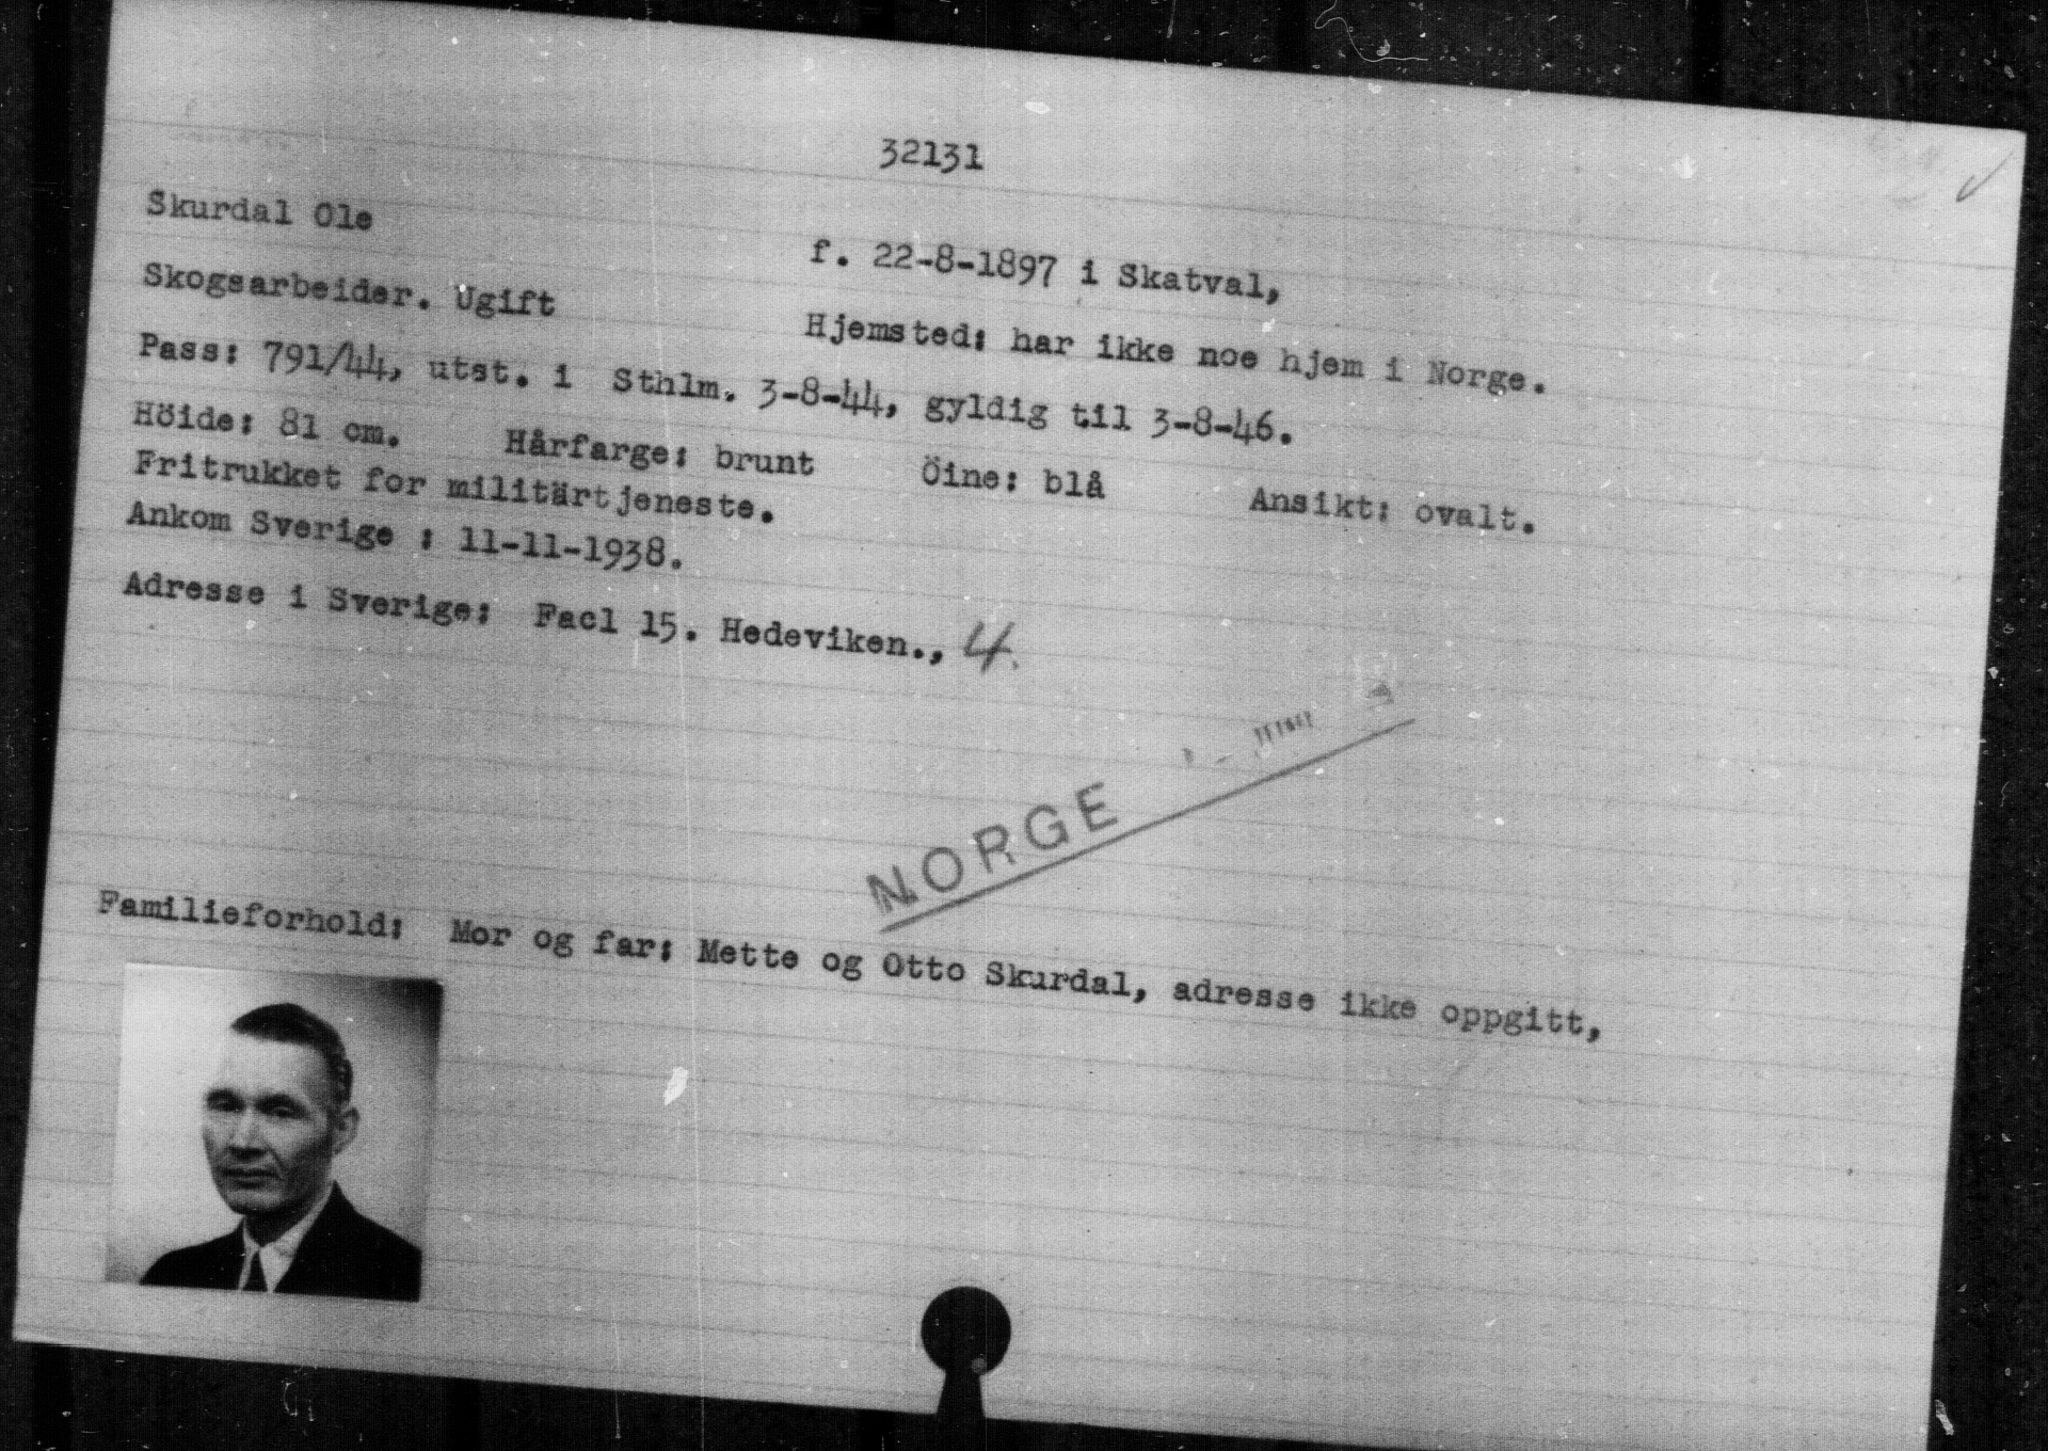 32131
Skurdal Ole
f. 22-8-1897 i Skatval,
Skogsarbeider. Ugift
Hjemsted: har ikke noe hjem i Norge.
Pass: 791/44, utst. i Sthlm. 3-8-44, gyldig til 3-8-46.
Höide: 81 cm. Hårfarge: brunt Öine: blå Ansikt: ovalt.
Fritrukket for militärtjeneste.
Ankom Sverige : 11-11-1938.
Adresse i Sverige: Facl 15. Hedeviken., 4.
NORGE
Familieforhold: Mor og far: Mette og Otto Skurdal, adresse ikke oppgitt,